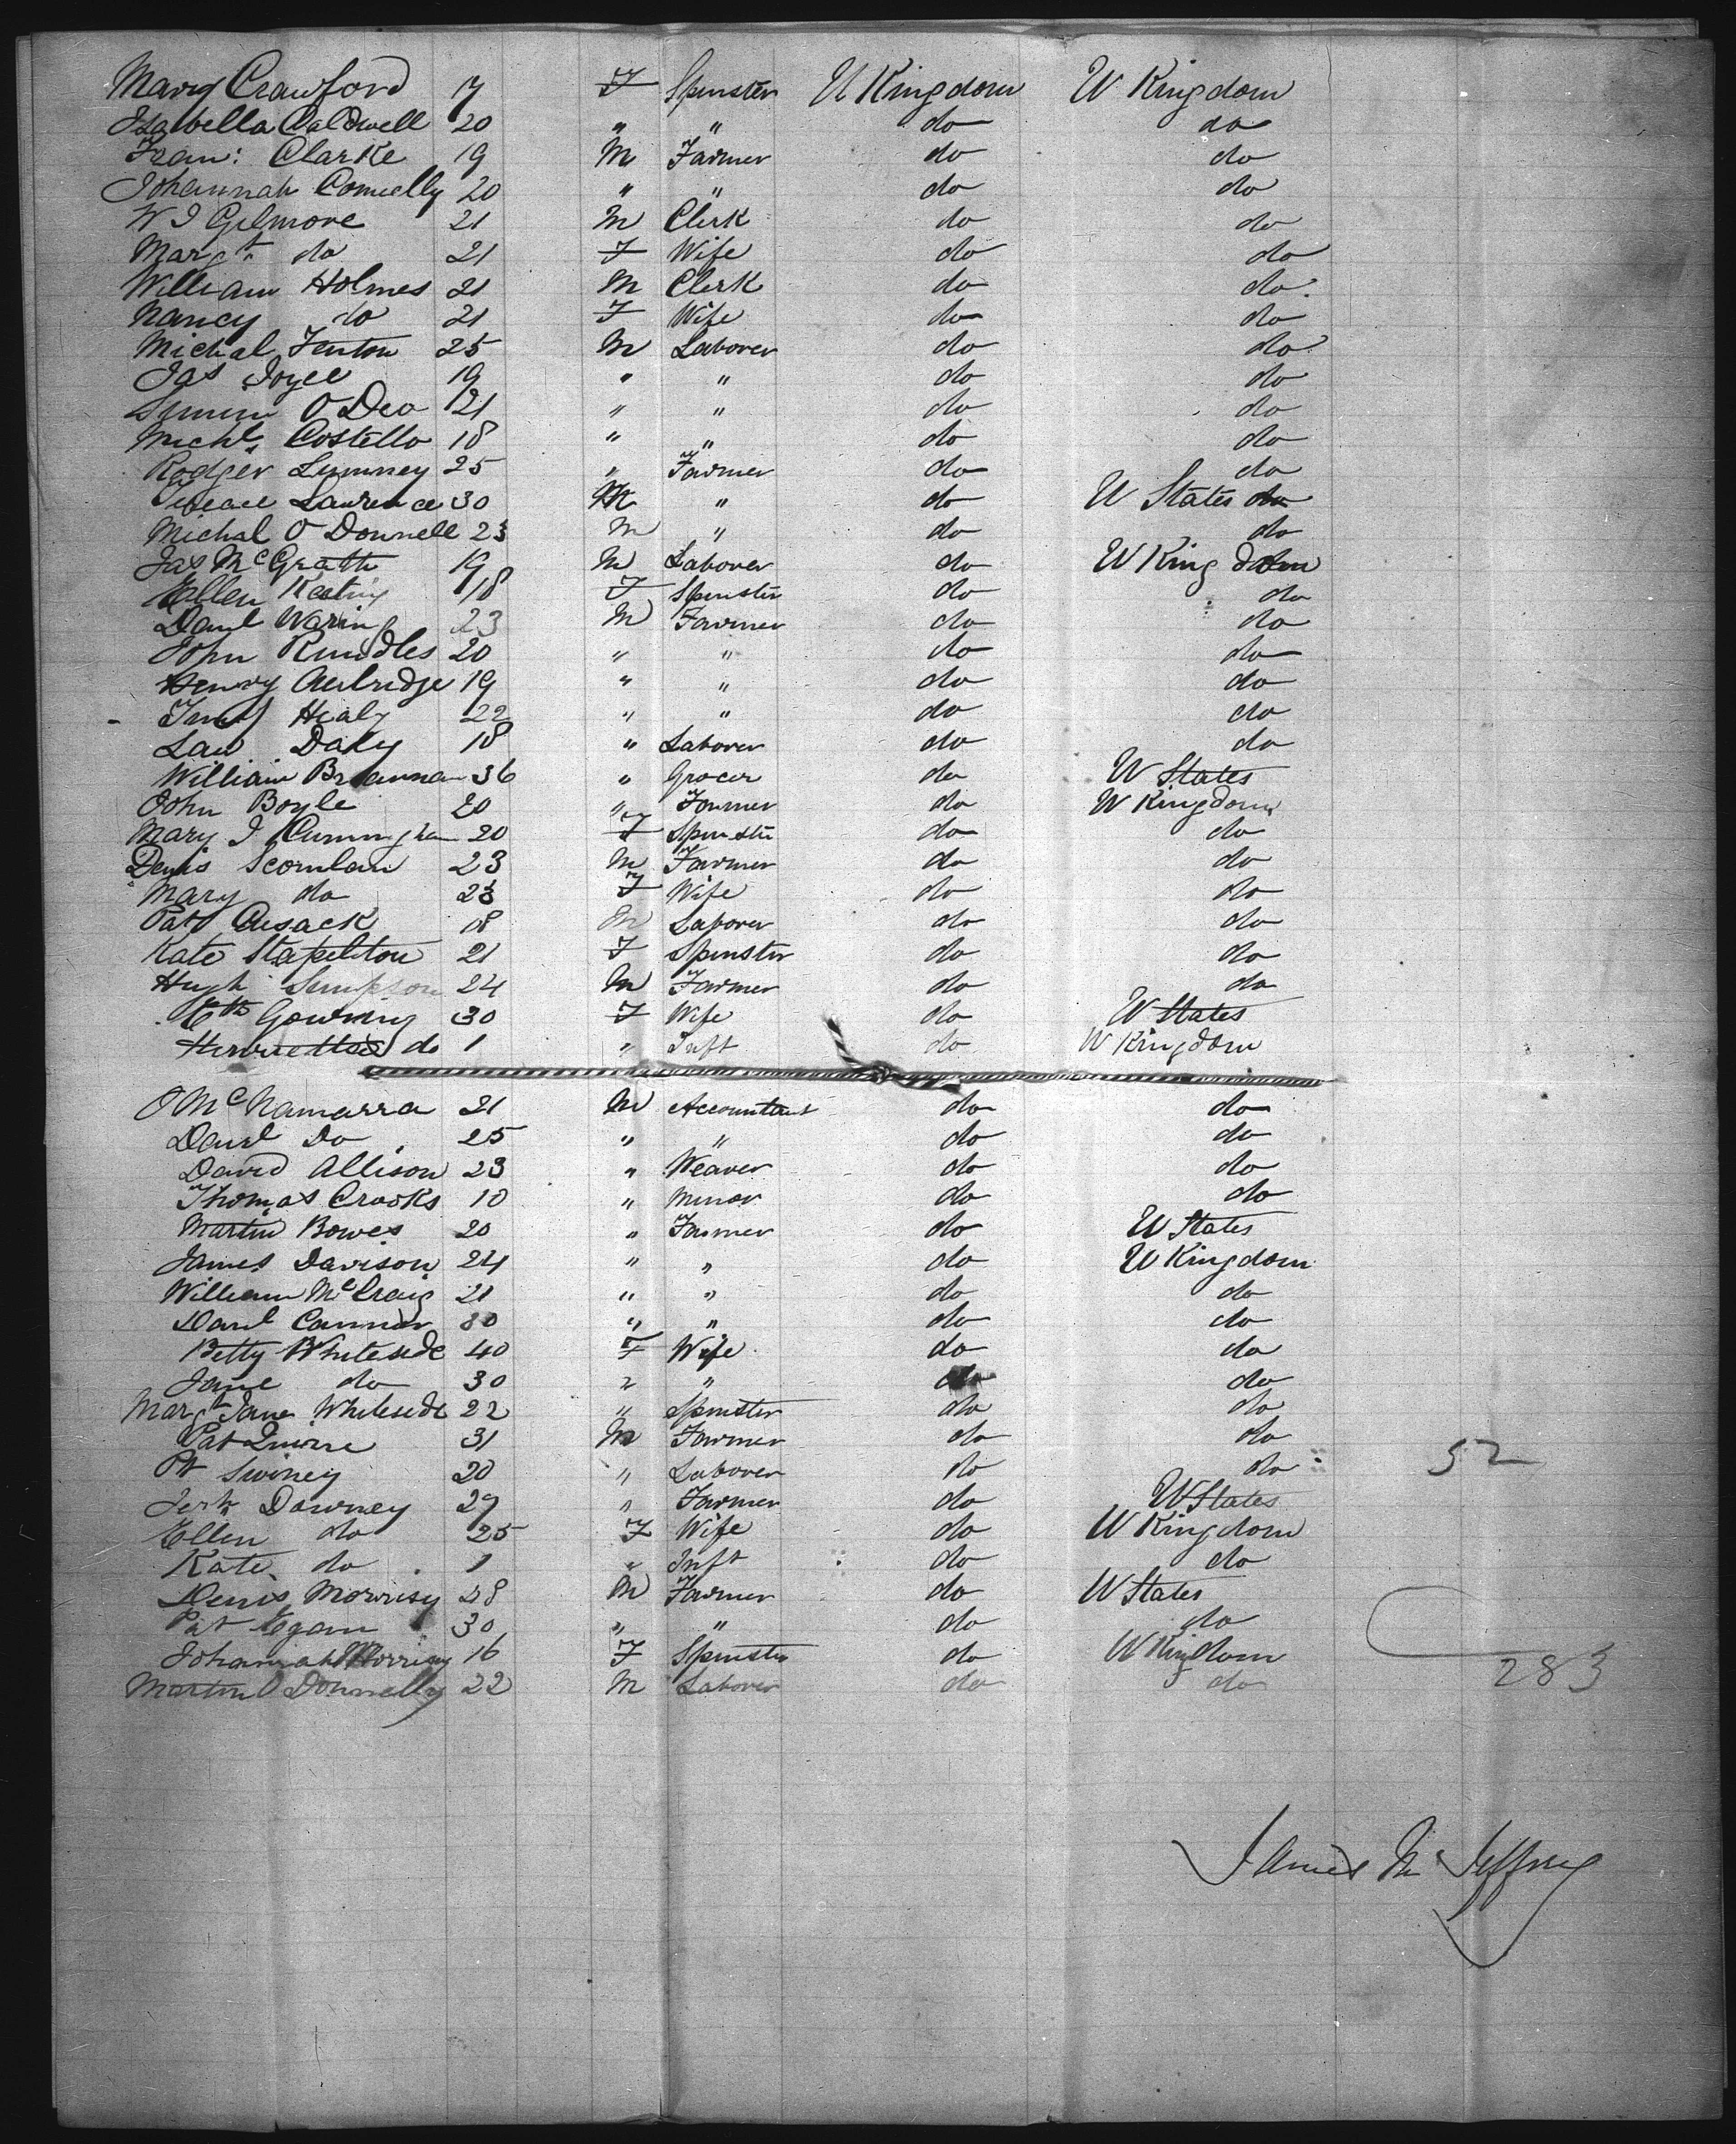 Mary Crawford 17 F Spinster U Kingdom U Kingdom
Isabella Caldwell 20 " " do do
Fran: Clarke 19 M Farmer do do
Johannah Connelly 20 " " do do
W J Gilmore 21 M Clerk do do
Margt do 21 F Wife do do
William Holmes 21 M Clerk do do
Nancy do 21 F Wife do do
Michal Fenton 25 M Laborer do do
Jas Joyce 19 " " do do
O Dea 21 " " do do
Michl Costello 18 " " do do
Rodger Lumney 25 " Farmer do do
Lawrence 30 M " do U States do
Michal O Donnell 23 M " do do
Jas McGrath 19 M Laborer do U King dom
Ellen Keating 18 F Spinster do do
Danl Waring 23 M Farmer do do
John Rundles 20 " " do do
Henry 19 " " do do
Healy 22 " " do do
Law Daly 18 " Laborer do do
William Brannan 36 " Grocer do U States
John Boyle 20 " Farmer do U Kingdom
Mary J Cunningham 20 F Spinster do do
Denis Scornlan 23 M Farmer do do
Mary do 23 F Wife do do
Pat Cusack 18 M Laborer do do
Kate Stapelton 21 F Spinster do do
Hugh Simpson 24 M Farmer do do
Eth Gowring 30 F Wife do U States
Henrietta do 1 " Inft do U Kingdom
O McNamarra 21 M Accountant do do
Danl Do 25 " " do do
David Allison 23 " Weaver do do
Thomas Crooks 10 " Minor do do
Martin Bowes 20 " Farmer do U States
James Davison 24 " " do U Kingdom
William McCraig 21 " " do do
Danl Connor 30 " " do do
Betty Whiteside 40 F Wife do do
Jane do 30 " " do do
Margt Jane Whiteside 22 " Spinster do do
Pat Quirre 31 M Farmer do do
Pt Swiney 20 " Laborer do do 52
Jerh Downey 29 " Farmer do U States
Ellen do 25 F Wife do U Kingdom
Kate do 1 " Inft do do
Denis Morrisy 28 M Farmer do U States
Pat Egan 30 " " do do
Johannah Morrisy 16 F Spinster do U Kingdom
Martin O Donnelly 22 M Laborer do do 283
James M Jeffrey